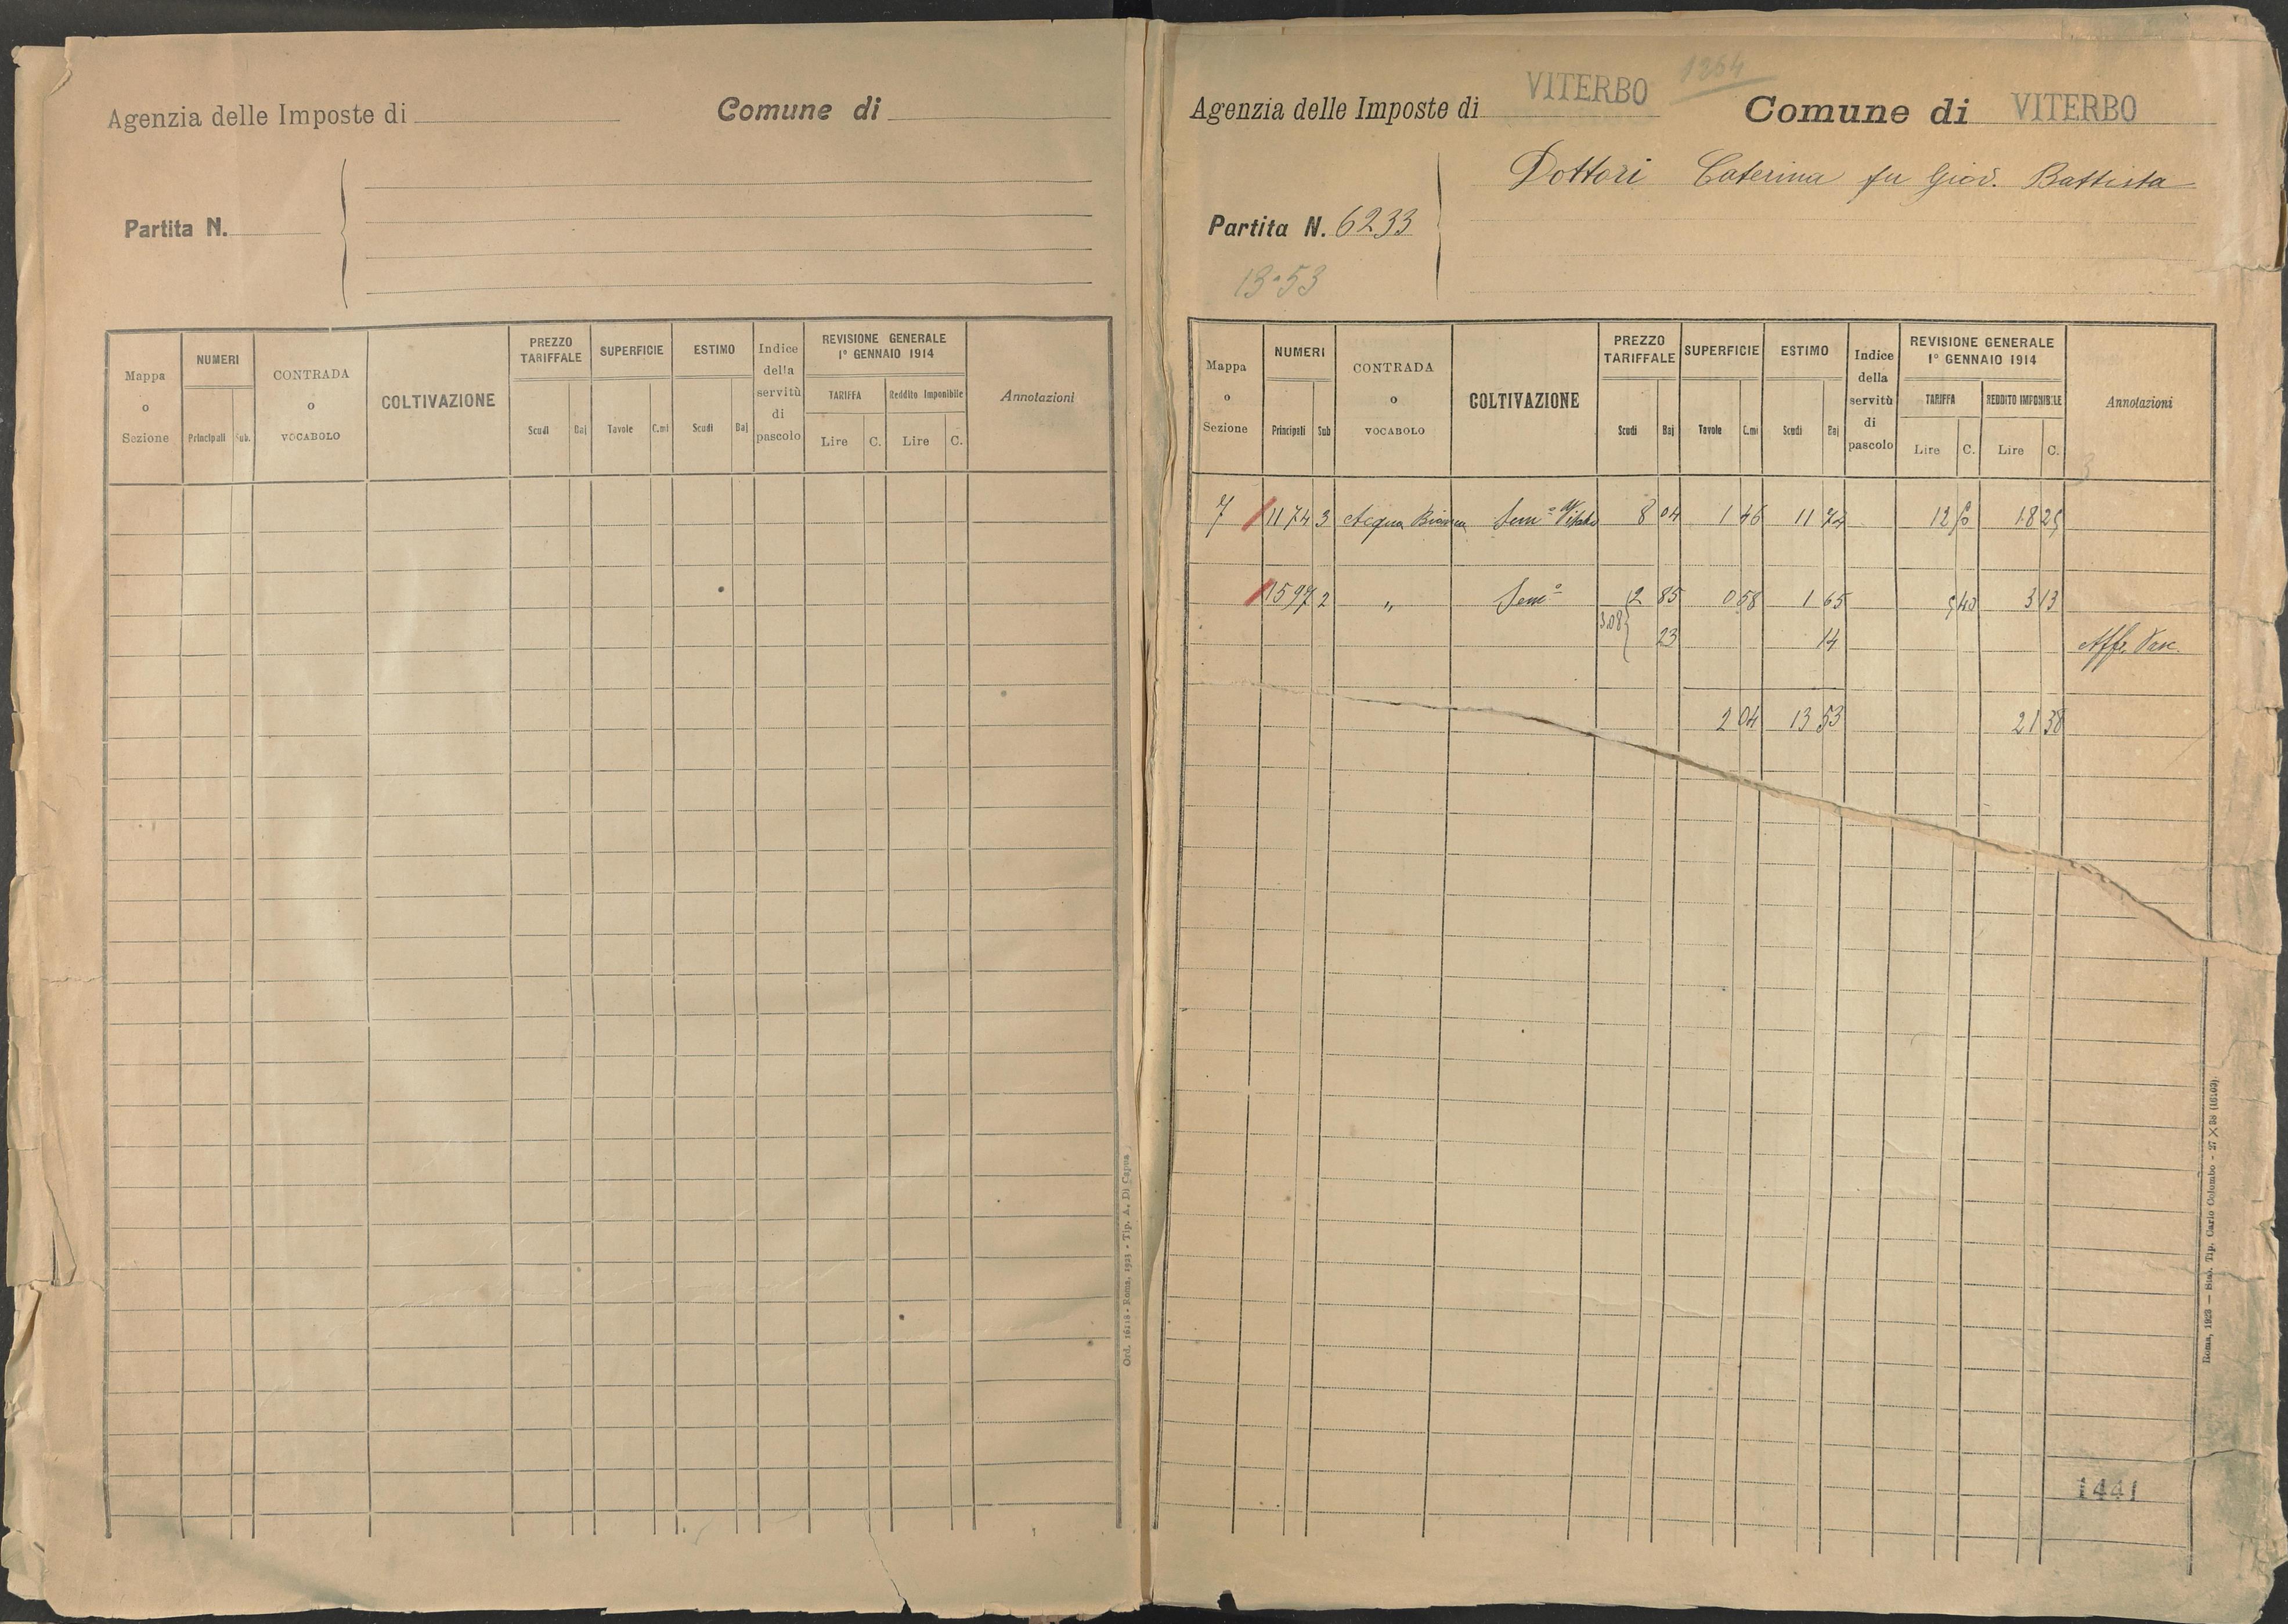 Agenzia delle Imposte di
Comune di
Partita N.
Mappa o Sezione
NUMERI
Principali
Sub.
CONTRADA o VOCABOLO
COLTIVAZIONE
PREZZO TARIFFALE
Scudi
Baj
SUPERFICIE
Tavole
C.mi
ESTIMO
Scudi
Baj
Indice della servitù di pascolo
REVISIONE GENERALE
1° GENNAIO 1914
TARIFFA
Reddito Imponibile
Lire C. Lire C.
Annotazioni
Ord. 16118 - Roma, 1923 - Tip. A. Di Capua
1264
Agenzia delle Imposte di VITERBO
Comune di VITERBO
Dottori Caterina fu Giov. Battista
Partita N. 6233
13.53
Mappa o Sezione
NUMERI
Principali
Sub
CONTRADA o VOCABOLO
COLTIVAZIONE
PREZZO TARIFFALE
Scudi
Baj
SUPERFICIE
Tavole
C.mi
ESTIMO
Scudi
Baj
Indice della servitù di pascolo
REVISIONE GENERALE
1° GENNAIO 1914
TARIFFA
REDDITO IMPONIBILE
Lire C. Lire C.
Annotazioni
3
7 1174 3 Acqua Bianca Sem.º Vitato 8 04 1 46 11 74 12 50 18 25
1597 2 " Sem.º 2 85 0 58 1 65 5 40 3 13
3.08 23 14 Aff. Pasc.
2 04 13 53 21 38
Roma, 1923 — Stab. Tip. Carlo Colombo - 27 X 38 (16193)
1441